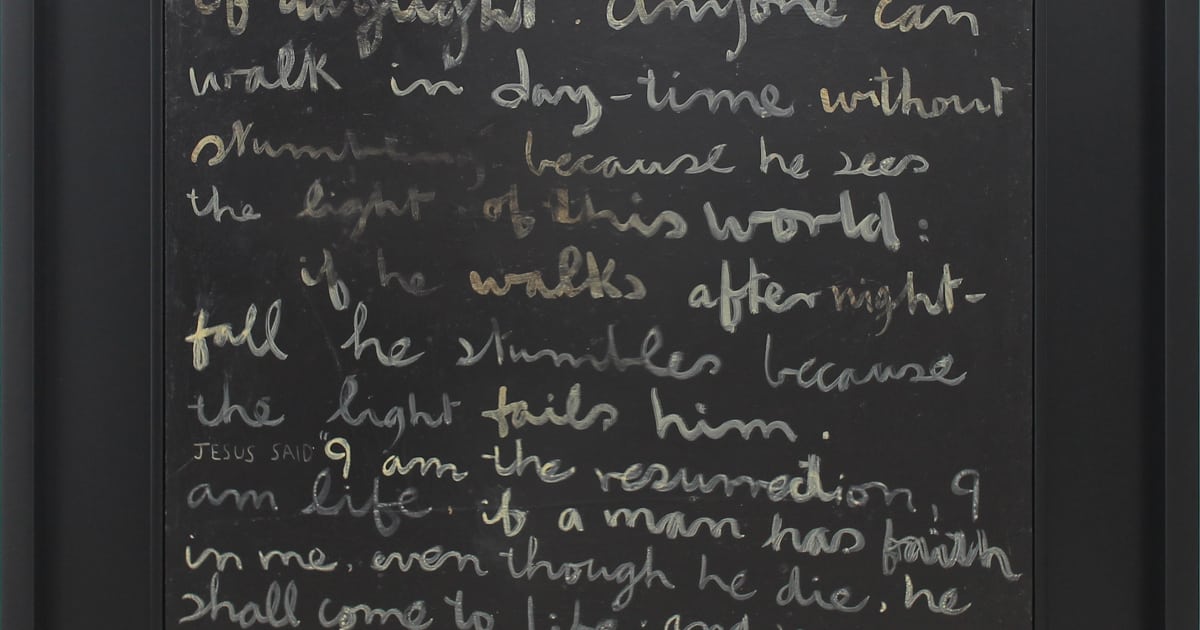 of daylight. Anyone can
walk in day-time without
stumbling because he sees
the light of this world:
if he walks after night-
fall he stumbles because
the light fails him.
JESUS SAID "I am the resurrection, I
am life, if a man has faith
in me, even though he die, he
shall come to life; and